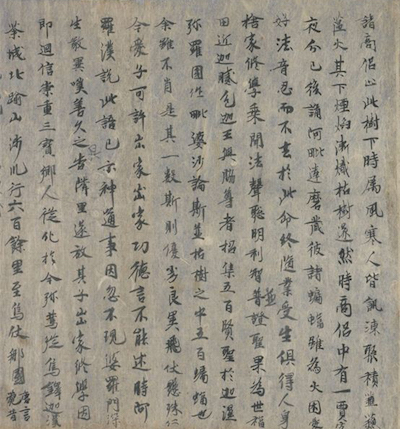 諸商侶止此樹下時属風寒人皆飢凍聚積樵蘇
蘊火其下煙焰漸熾枯樹遂然時商侶中有一賈客
夜分已後誦阿毗達磨藏彼諸蝙蝠雖為火困愛
好法音忍而不去於此命終隨業受生俱得人身
捨家修學乘聞法聲聰明利智普證聖果為世福
田近迦膩色迦王與脇尊者招集五百賢聖於迦濕
弥羅國作毗婆沙論斯並枯樹之中五百蝙蝠也
余雖不肖是其一數斯則優劣良異飛伏懸殊仁
令愛子可許出家出家功德言不能述時阿
羅漢說此語已示神通事因忽不現婆羅門深
生敬異嘆善久之告隣里遂放其子出家修學因
即迴信崇重三寶鄉人從化於今弥篤從烏鐸迦漢
荼城北踰山涉川行六百餘里至烏仗那國唐言苑昔